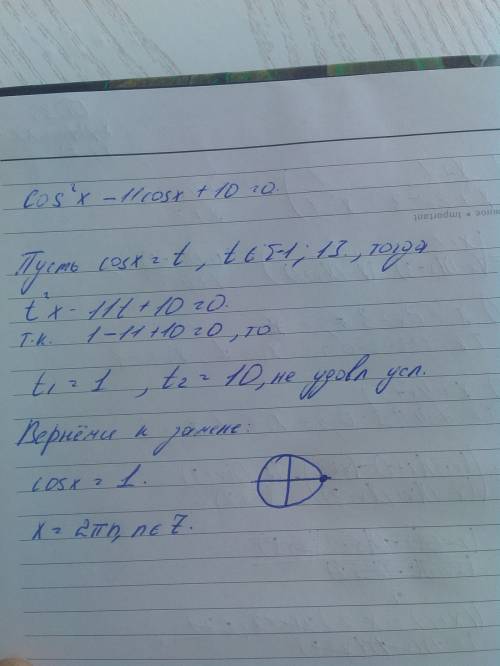 cos²x - 11cosx + 10 = 0.
Important
Пусть cosx = t, t ∈ [-1; 1]., тогда
t²x - 11t + 10 = 0.
т.к. 1 - 11 + 10 = 0, то
t₁ = 1, t₂ = 10, не удовл усл.
Вернёмся к замене:
cosx = 1.
x = 2πn, n ∈ Z.